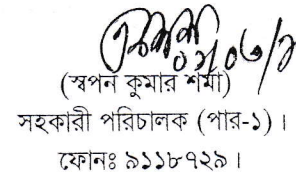 ০১/০৬/১
(স্বপন কুমার শর্মা)
সহকারী পরিচালক (পার-১) ।
ফোনঃ ৯১১৮৭২৯ ।